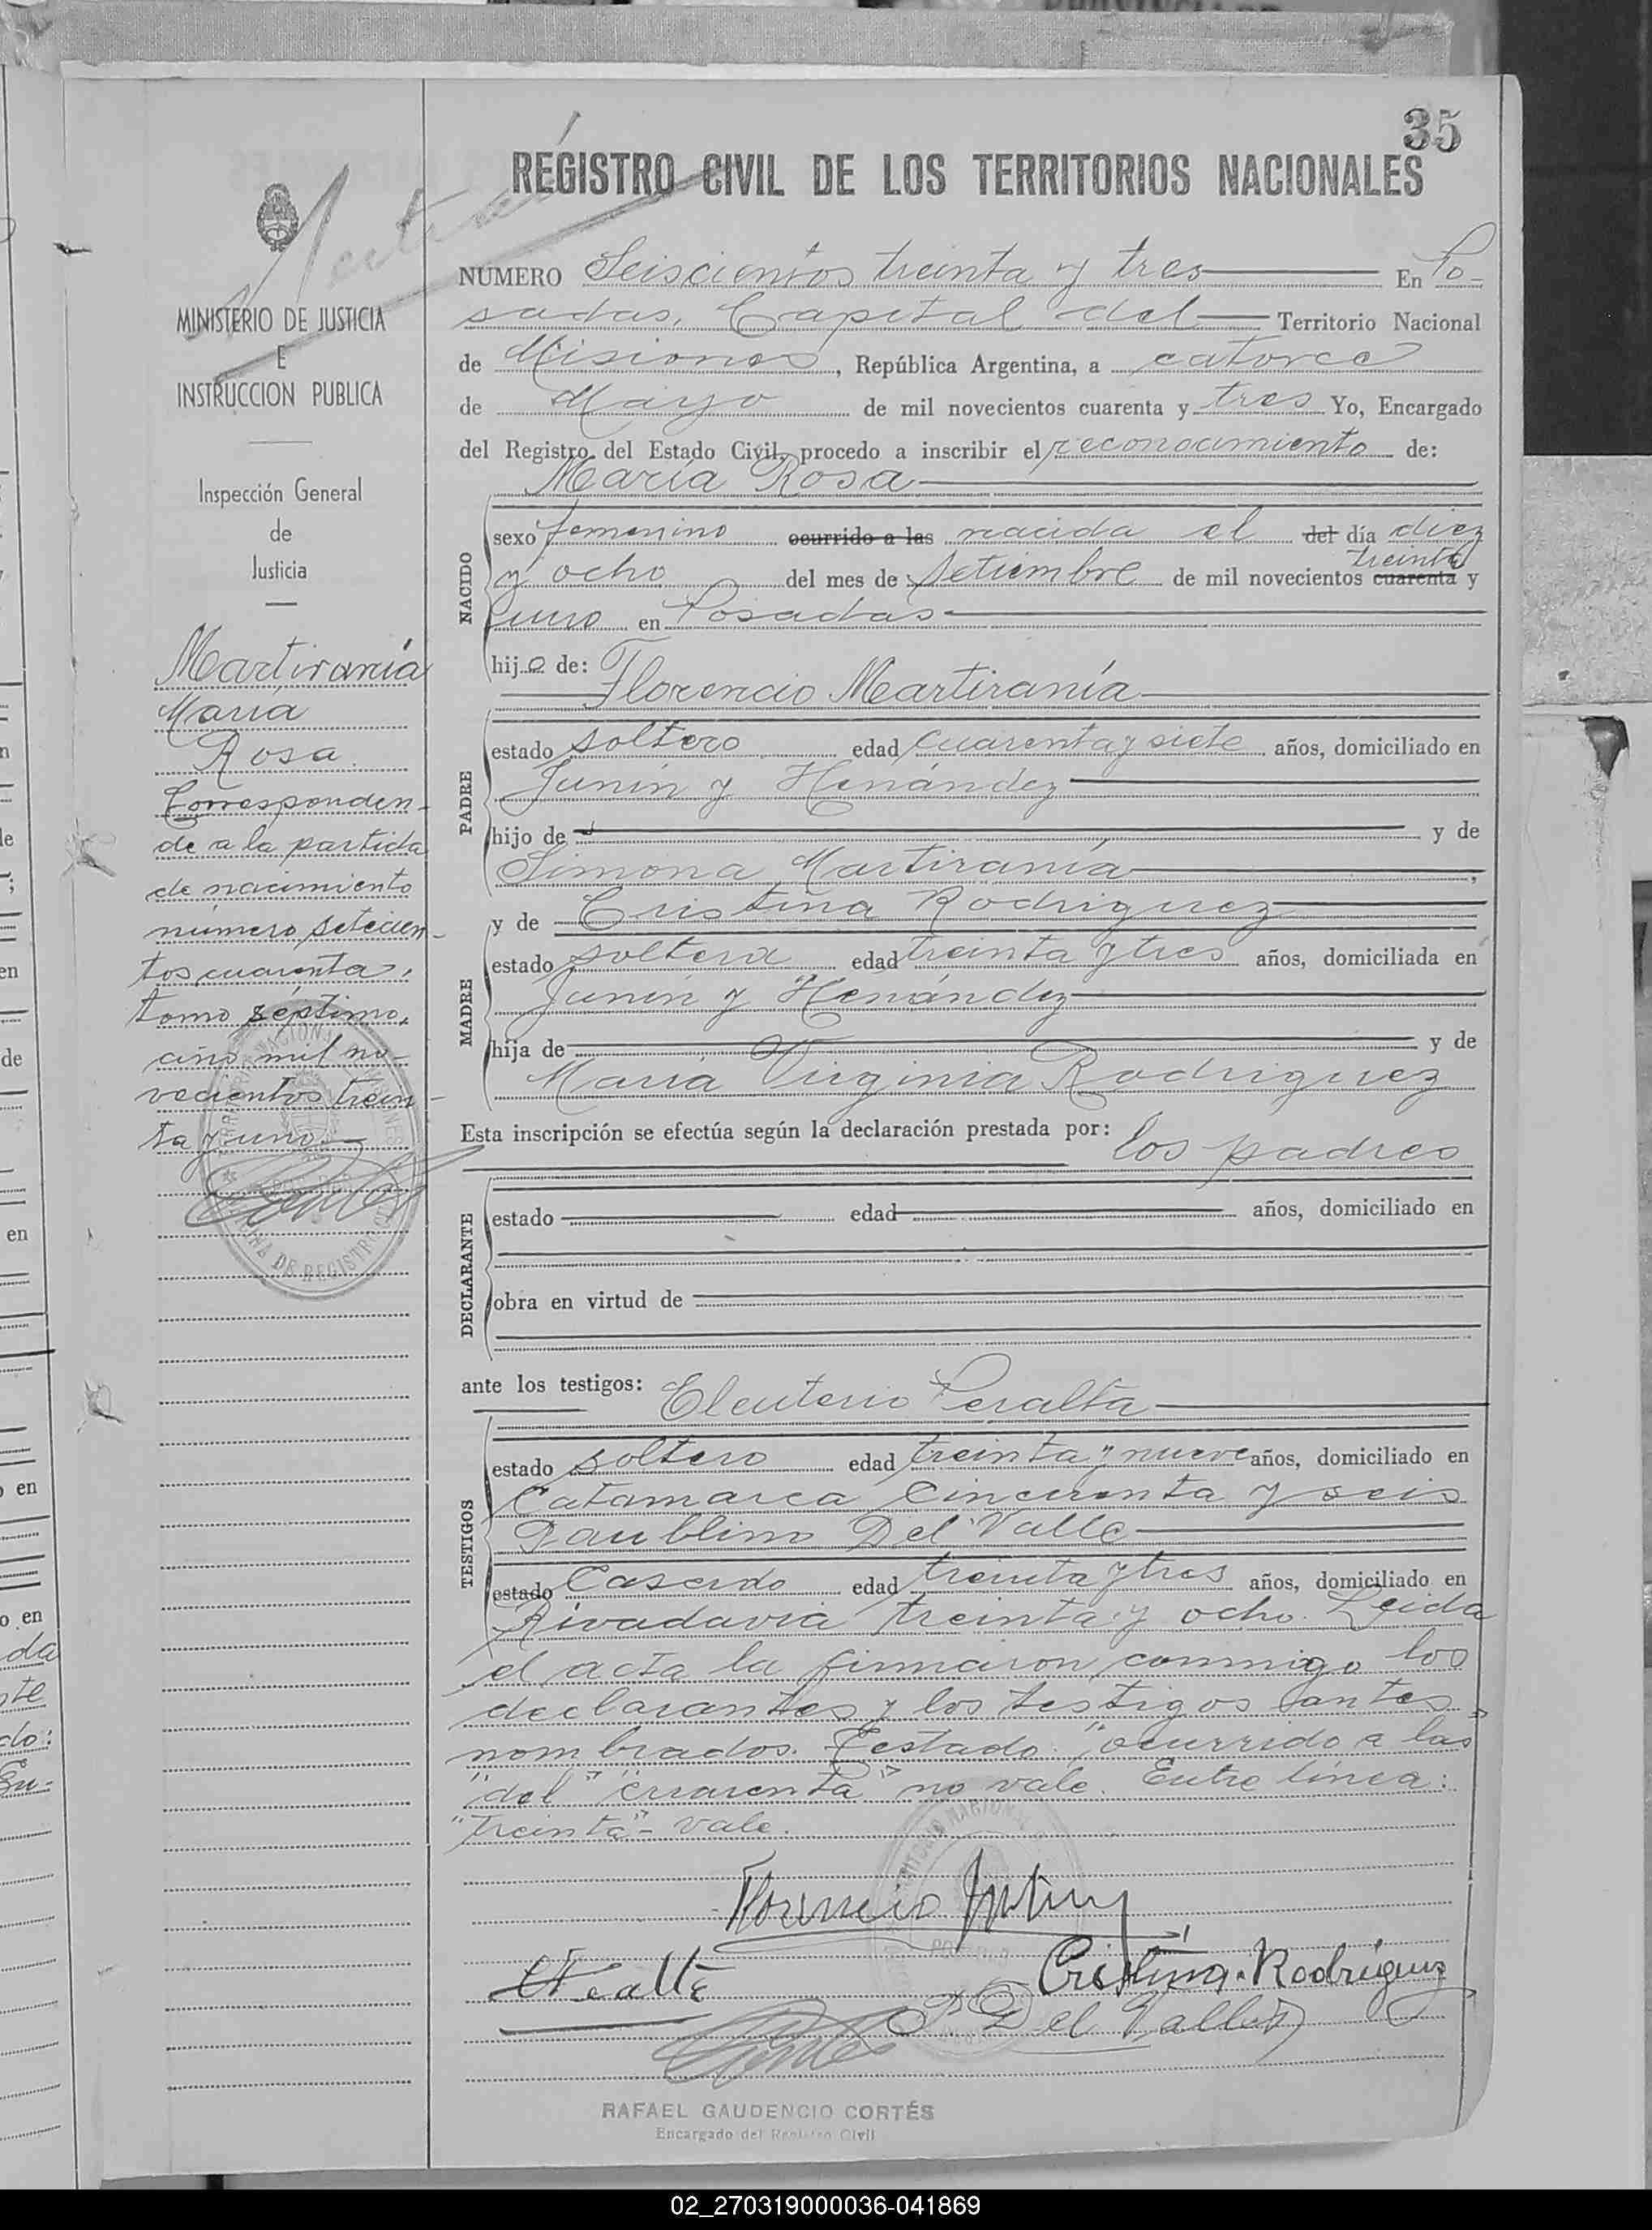 35
REGISTRO CIVIL DE LOS TERRITORIOS NACIONALES
MINISTERIO DE JUSTICIA
E
INSTRUCCION PUBLICA
Inspección General
de
Justicia
Martirania
María
Rosa
Corresponden-
de a la partida
de nacimiento
número setecien-
tos cuarenta,
tomo séptimo,
año mil no-
vecientos trein-
ta y uno.
NUMERO Seiscientos treinta y tres En Po-
sadas, Capital del Territorio Nacional
de Misiones, República Argentina, a catorce
de Mayo de mil novecientos cuarenta y tres Yo, Encargado
del Registro del Estado Civil, procedo a inscribir el reconocimiento de:
María Rosa
NACIDO
sexo femenino ocurrido a las nacida el del día diez
treinta
y ocho del mes de Setiembre de mil novecientos cuarenta y
uno en Posadas
hija de:
Florencio Martiranía
PADRE
estado soltero edad cuarenta y siete años, domiciliado en
Junín y Henández
hijo de y de
Simona Martiranía,
y de Cristina Rodriguez
MADRE
estado soltera edad treinta y tres años, domiciliada en
Junín y Henández
hija de y de
María Virginia Rodriguez
Esta inscripción se efectúa según la declaración prestada por: los padres
DECLARANTE
estado edad años, domiciliado en
obra en virtud de
ante los testigos: Eleuterio Peralta
TESTIGOS
estado soltero edad treinta y nueve años, domiciliado en
Catamarca Cincuenta y seis
Paublino Del Valle
estado Casado edad treinta y tres años, domiciliado en
Rivadavia treinta y ocho. Leida
el acta la firmaron conmigo los
declarantes y los testigos antes
nombrados. Testado: "ocurrido a las
"del" "cuarenta" no vale. Entre línea:
"treinta" - Vale.
Florencio
Cristina Rodriguez
P. Del Valle
RAFAEL GAUDENCIO CORTÉS
Encargado del Registro Civil
02_270319000036-041869